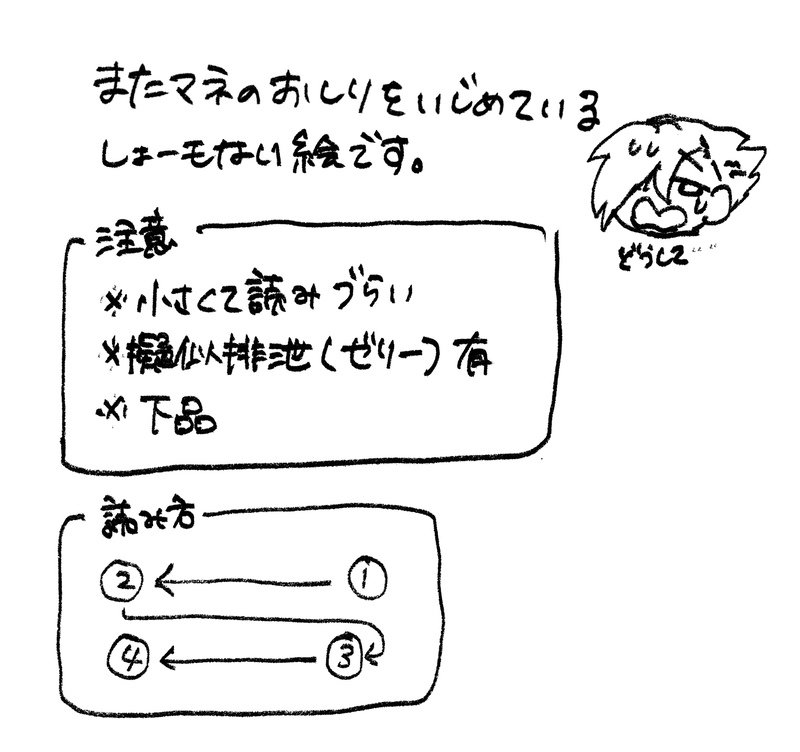 またマネのおしりをいじめている
しょーもない絵です。
どうして……
注意
※小さくて読みづらい
※擬似排泄(ゼリー)有
※下品
読み方
② ← ①
④ ← ③